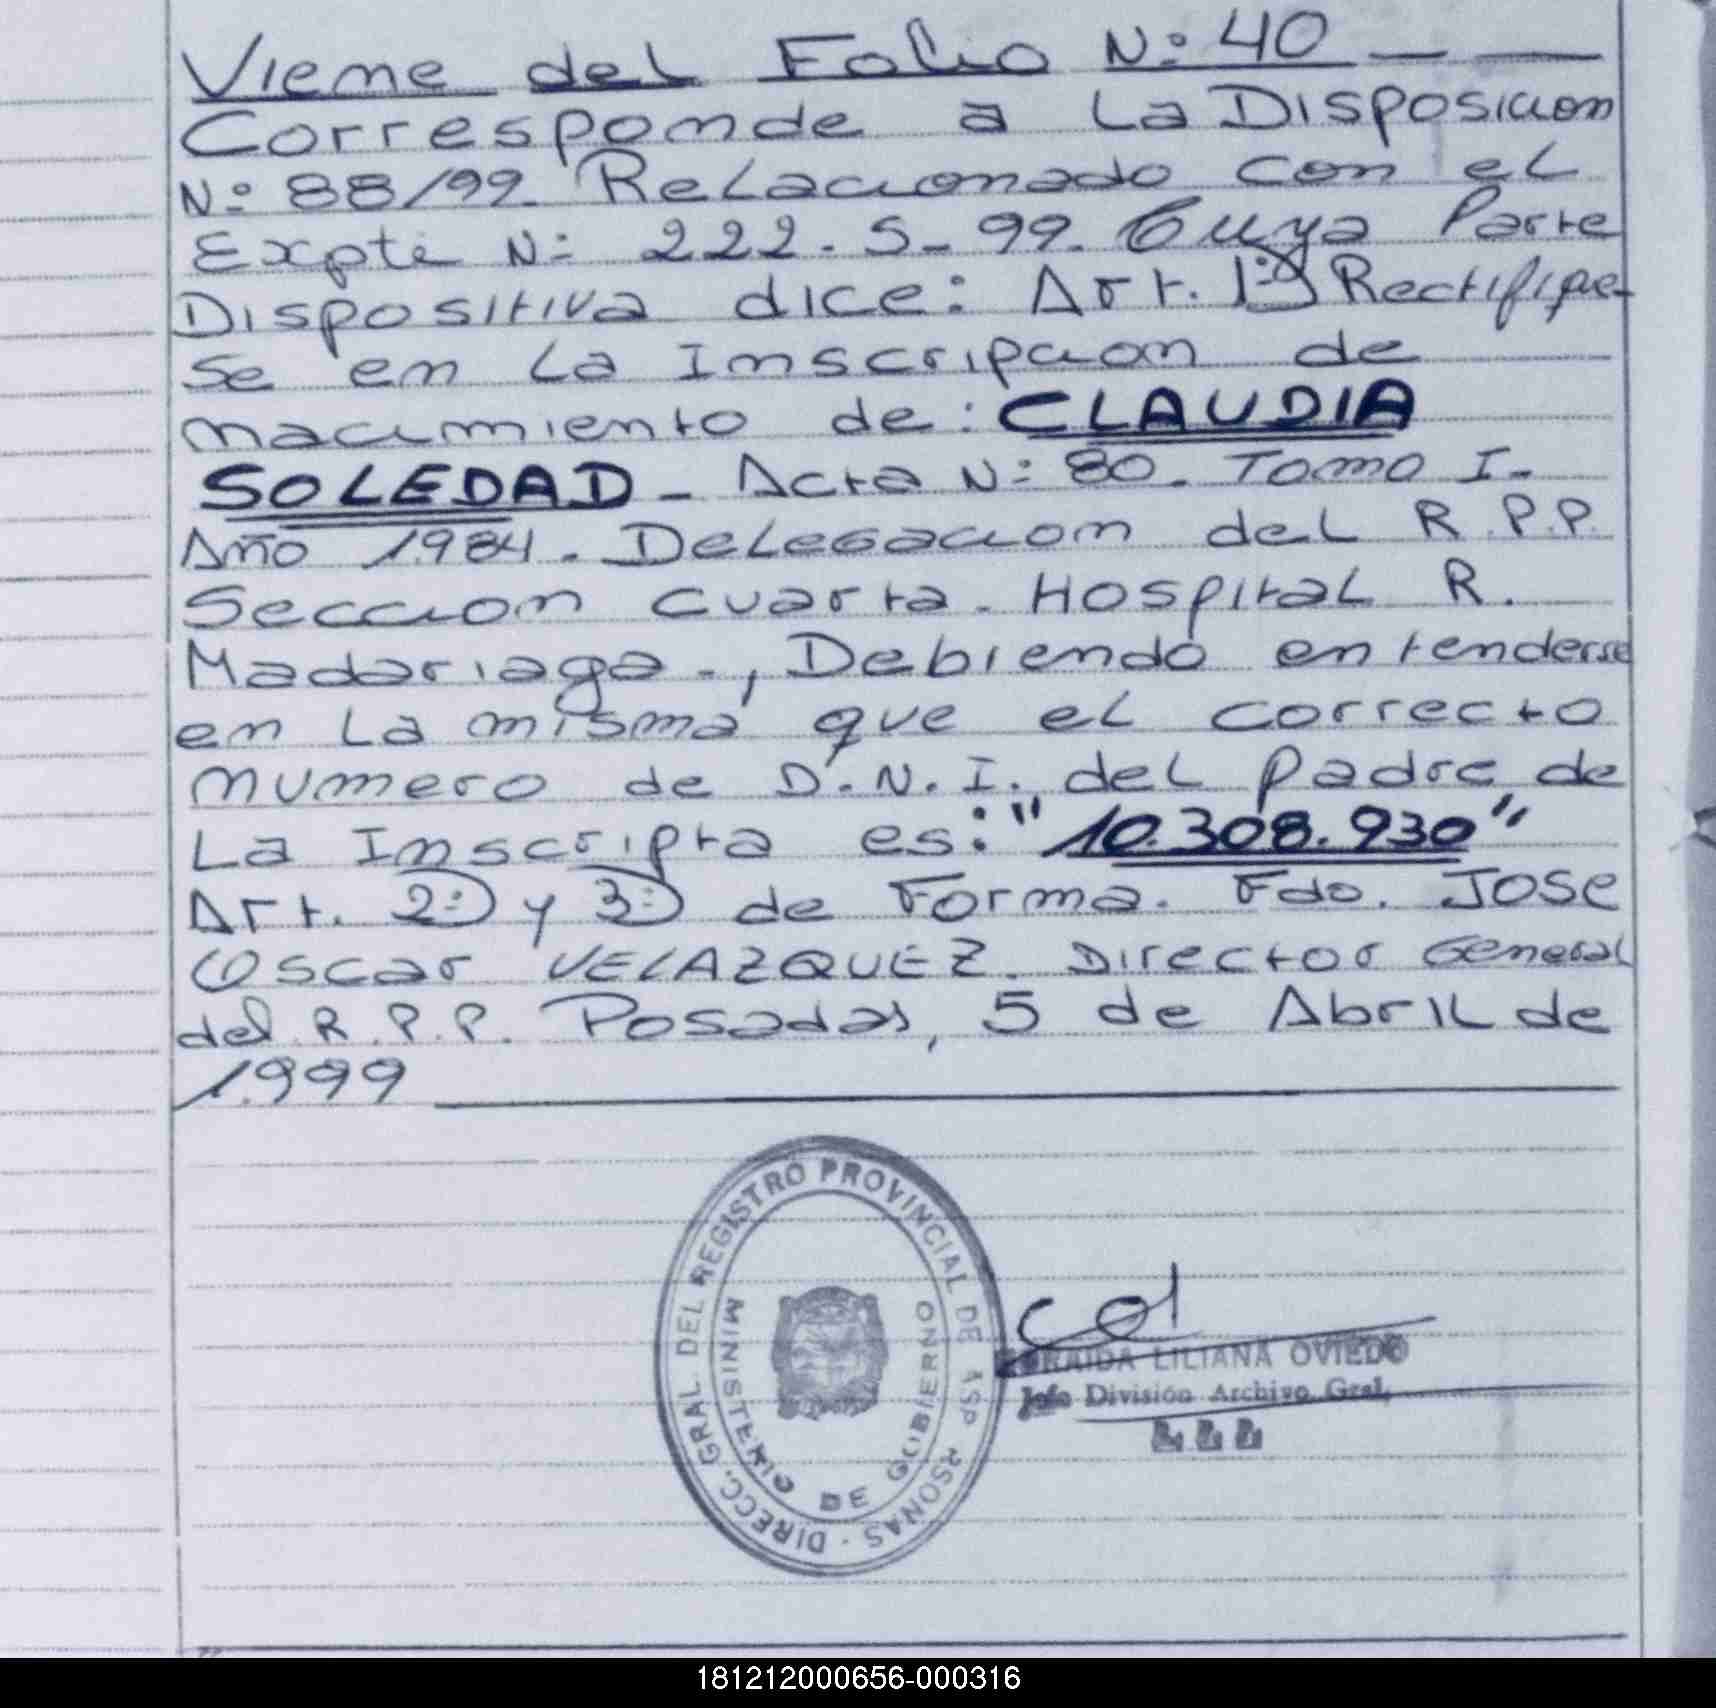 Viene del Folio N: 40
Corresponde a La Disposicion
N: 88/99. Relacionado con el
Expte N: 222-S-99. Cuya Parte
Dispositiva dice: Art. 1:) Rectifique
se en La Inscripcion de
nacimiento de: CLAUDIA
SOLEDAD - Acta N: 80. Tomo I.
Año 1984. Delegacion del R.P.P.
Seccion Cuarta. Hospital R.
Madariaga., Debiendo entenderse
en La misma que el correcto
numero de D.N.I. del padre de
La Inscripta es: "10.308.930"
Art. 2:) y 3:) de Forma. Fdo. JOSE
Oscar VELAZQUEZ. Director General
del R.P.P. Posadas, 5 de Abril de
1.999
DIRECC. GRAL. DEL REGISTRO PROVINCIAL DE
MINISTERIO DE GOBIERNO
LILIANA OVIEDO
Jefe División Archivo Gral.
181212000656-000316